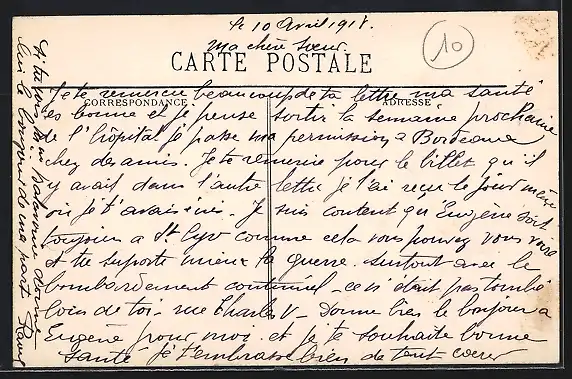 le 10 Avril 1918.
10
ma chère soeur.
CARTE POSTALE
CORRESPONDANCE
ADRESSE
Je te remercie beaucoup de ta lettre ma santé
es bonne et je pense sortir la semaine prochaine
de l'hôpital je passe ma permission a Bordeaux
chez des amis. Je te remercie pour le billet qu'il
y avait dans l'autre lettre je l'ai reçu le jour même
où je t'avais écris. Je suis content qu'Eugène soit
toujours a St Cyr comme cela vous pouvez vous voir
et te suporte mieux la guerre. surtout avec le
bombardement continuel - ce n'était pas tombé
loin de toi - rue Charles V - Donne bien le bonjour a
Eugène pour moi. et je te souhaite bonne
santé je t'embrasse bien de tout coeur
Si tu vois donne
lui le bonjour de ma part